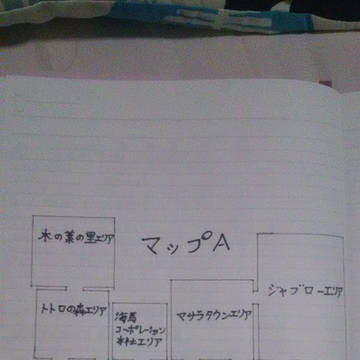 マップA
木の葉の里エリア
シャブローエリア
トトロの森エリア
海馬
コーポレーション
本社エリア
マサラタウンエリア